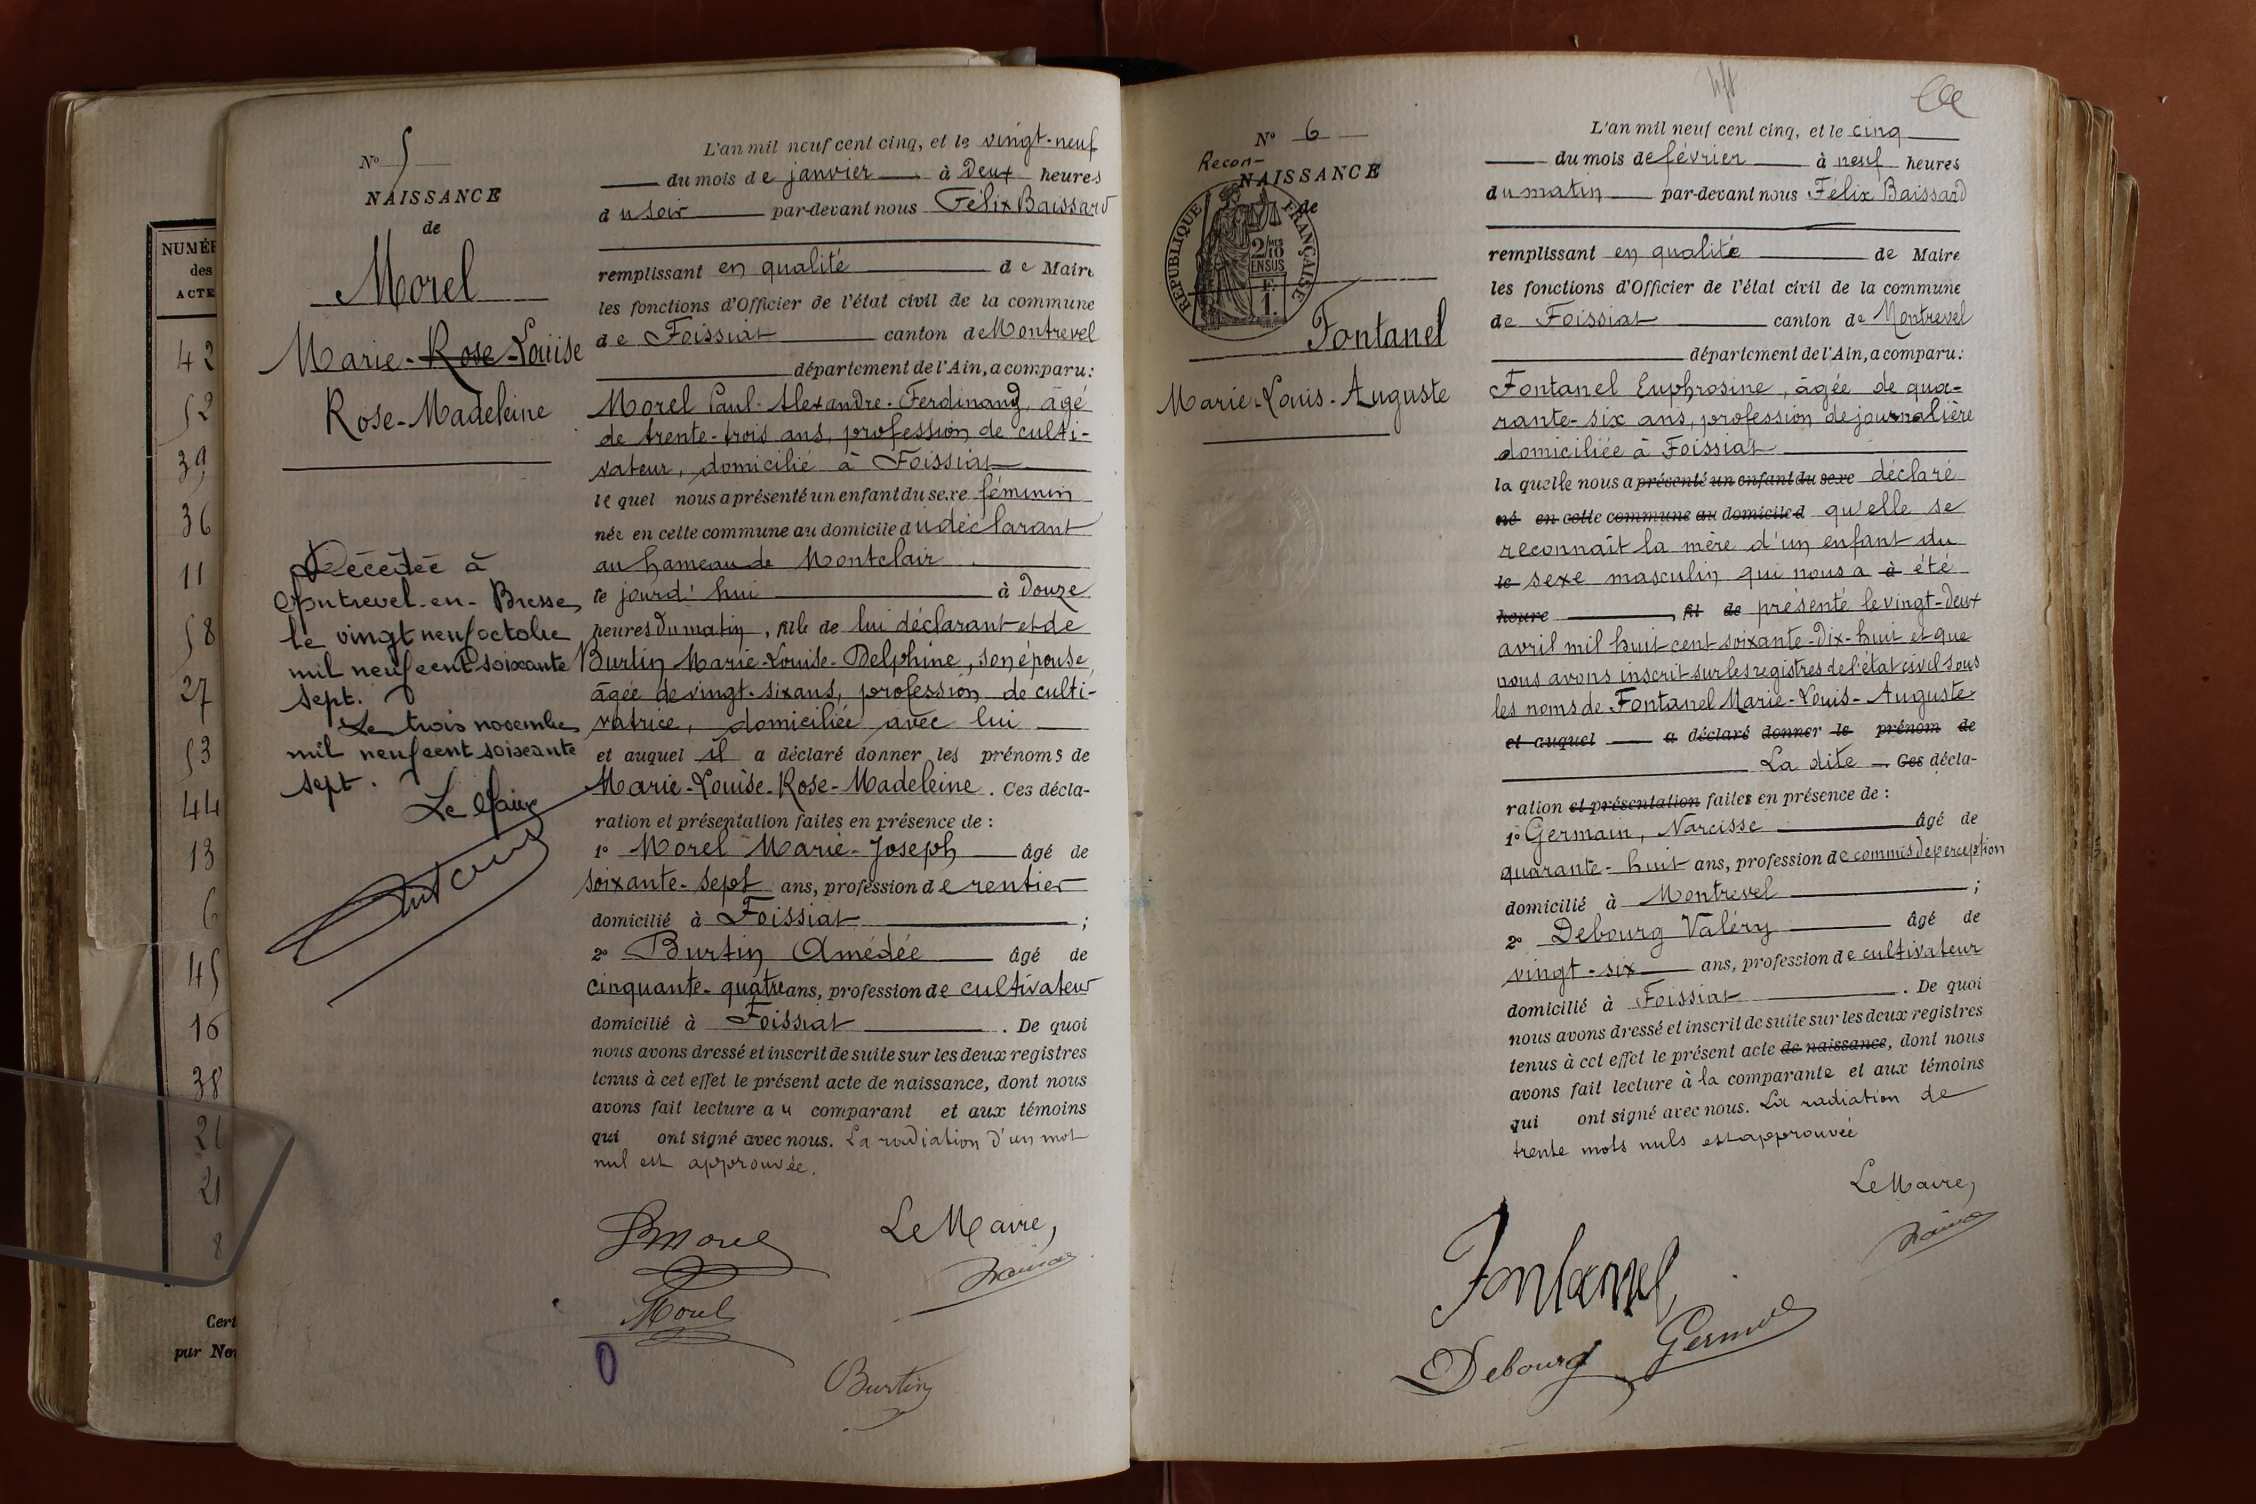 NUMÉR
des
ACTE
42
52
39
36
11
58
27
53
44
13
6
45
16
38
21
8
Cert
par No
N° 5
NAISSANCE
de
Morel
Marie-Rose-Louise
Rose-Madeleine
Décédée à
Montrevel-en-Bresse
le vingt neuf octobre
mil neuf cent soixante
sept.
Le trois novembre
mil neuf cent soixante
sept.
Le Maire
L'an mil neuf cent cinq, et le vingt-neuf
du mois de janvier à Deux heures
du soir par-devant nous Félix Baissard
remplissant en qualité de Maire
les fonctions d'Officier de l'état civil de la commune
de Foissiat canton de Montrevel
département de l'Ain, a comparu:
Morel Paul-Alexandre-Ferdinand, âgé
de trente-trois ans, profession de culti-
vateur, domicilié à Foissiat
le quel nous a présenté un enfant du sexe féminin
née en cette commune au domicile du déclarant
au hameau de Montclair
le jourd'hui à Douze
heures du matin, fille de lui déclarant et de
Burtin Marie-Louise-Delphine, son épouse,
âgée de vingt-six ans, profession de culti-
vatrice, domiciliée avec lui
et auquel il a déclaré donner les prénoms de
Marie-Louise-Rose-Madeleine. Ces décla-
ration et présentation faites en présence de :
1° Morel Marie-Joseph âgé de
soixante-sept ans, profession de rentier
domicilié à Foissiat ;
2° Burtin Amédée âgé de
cinquante-quatre ans, profession de cultivateur
domicilié à Foissiat. De quoi
nous avons dressé et inscrit de suite sur les deux registres
tenus à cet effet le présent acte de naissance, dont nous
avons fait lecture au comparant et aux témoins
qui ont signé avec nous. La radiation d'un mot
nul est approuvée.
PMorel
Le Maire,
Morel
Burtin
N° 6
Recon-
NAISSANCE
de
RÉPUBLIQUE FRANÇAISE
2/10
EN SUS
1 F.
Fontanel
Marie-Louis-Auguste
L'an mil neuf cent cinq, et le cinq
du mois de février à neuf heures
du matin par-devant nous Félix Baissard
remplissant en qualité de Maire
les fonctions d'Officier de l'état civil de la commune
de Foissiat canton de Montrevel
département de l'Ain, a comparu:
Fontanel Euphrosine, âgée de qua-
rante-six ans, profession de journalière
domiciliée à Foissiat
la quelle nous a présenté un enfant du sexe déclaré
né en cette commune au domicile d qu'elle se
reconnaît la mère d'un enfant du
le sexe masculin qui nous a à été
heure fil de présenté le vingt-deux
avril mil huit cent soixante-dix-huit et que
nous avons inscrit sur les registres de l'état civil sous
les noms de Fontanel Marie-Louis-Auguste
et auquel a déclaré donner le prénom de
La dite Ces décla-
ration et présentation faites en présence de :
1° Germain, Narcisse âgé de
quarante-huit ans, profession de commis de perception
domicilié à Montrevel ;
2° Debourg Valéry âgé de
vingt-six ans, profession de cultivateur
domicilié à Foissiat. De quoi
nous avons dressé et inscrit de suite sur les deux registres
tenus à cet effet le présent acte de naissance, dont nous
avons fait lecture à la comparante et aux témoins
qui ont signé avec nous. La radiation de
trente mots nuls est approuvée
Le Maire,
Fontanel
Debourg